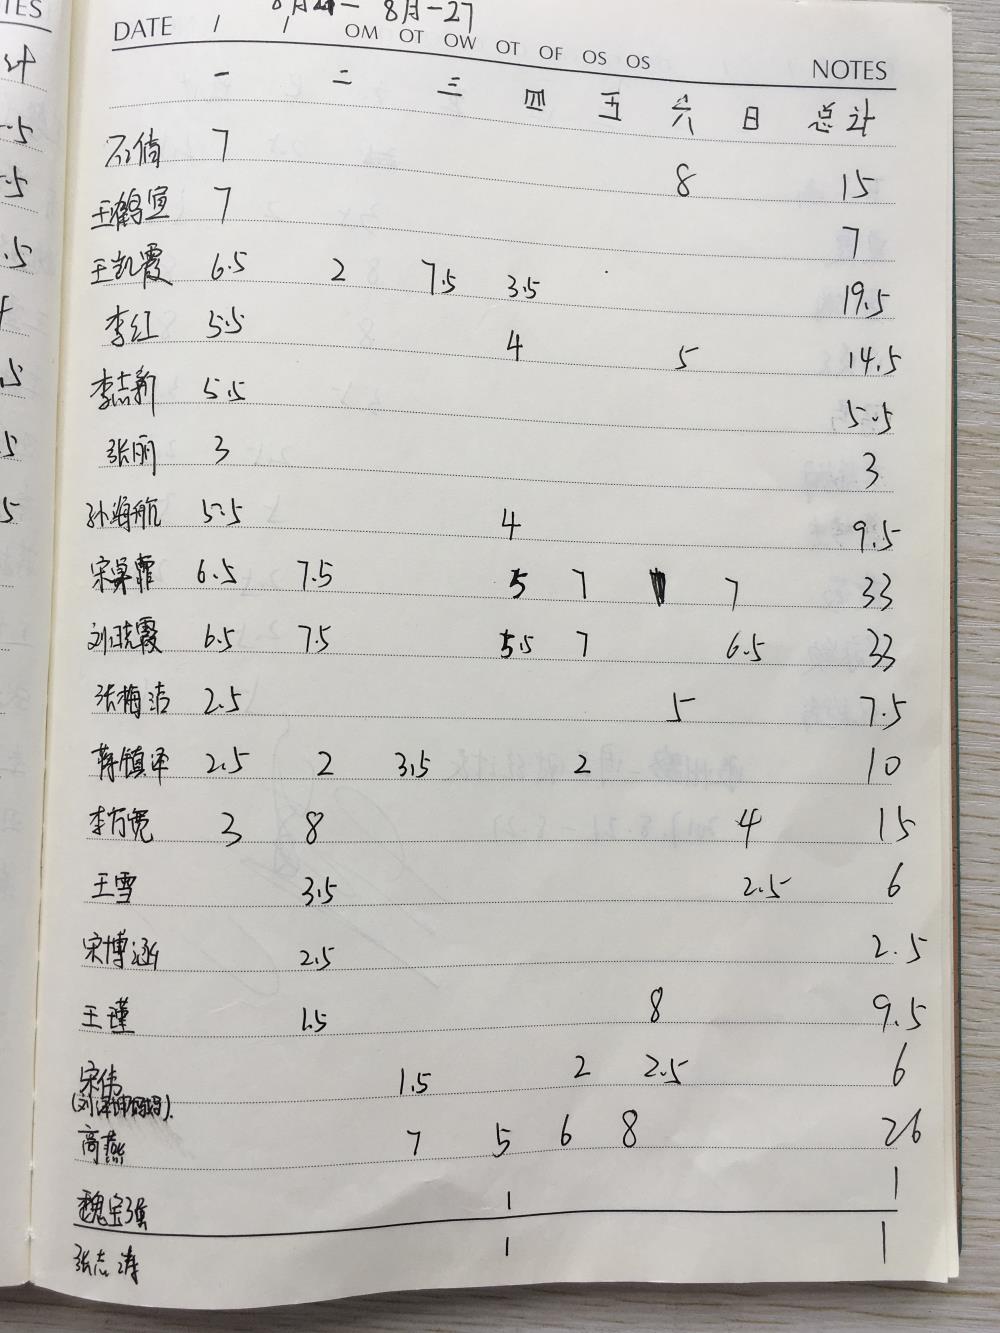 8月21-8月-27
DATE / / OM OT OW OT OF OS OS NOTES
一 二 三 四 五 六 日 总计
石倩 7 8 15
王鹤宣 7 7
王凯霞 6.5 2 7.5 3.5 19.5
李红 5.5 4 5 14.5
李志新 5.5 5.5
张丽 3 3
孙海航 5.5 4 9.5
宋昊霏 6.5 7.5 5 7 7 33
刘晓霞 6.5 7.5 5.5 7 6.5 33
张梅洁 2.5 5 7.5
蒋镇泽 2.5 2 3.5 2 10
李方宽 3 8 4 15
王雪 3.5 2.5 6
宋博涵 2.5 2.5
王瑾 1.5 8 9.5
宋伟 1.5 2 2.5 6
高燕 7 5 6 8 26
魏宝强 1 1
张志涛 1 1